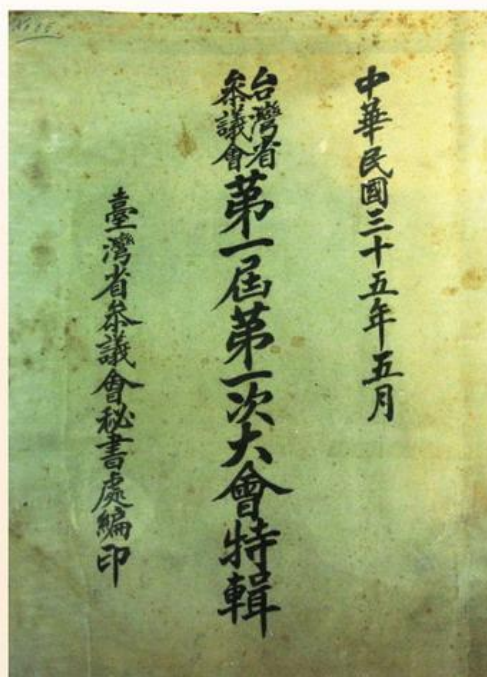 中華民國三十五年五月
台灣省
叅議會
第一屆第一次大會特輯
臺灣省叅議會秘書處編印